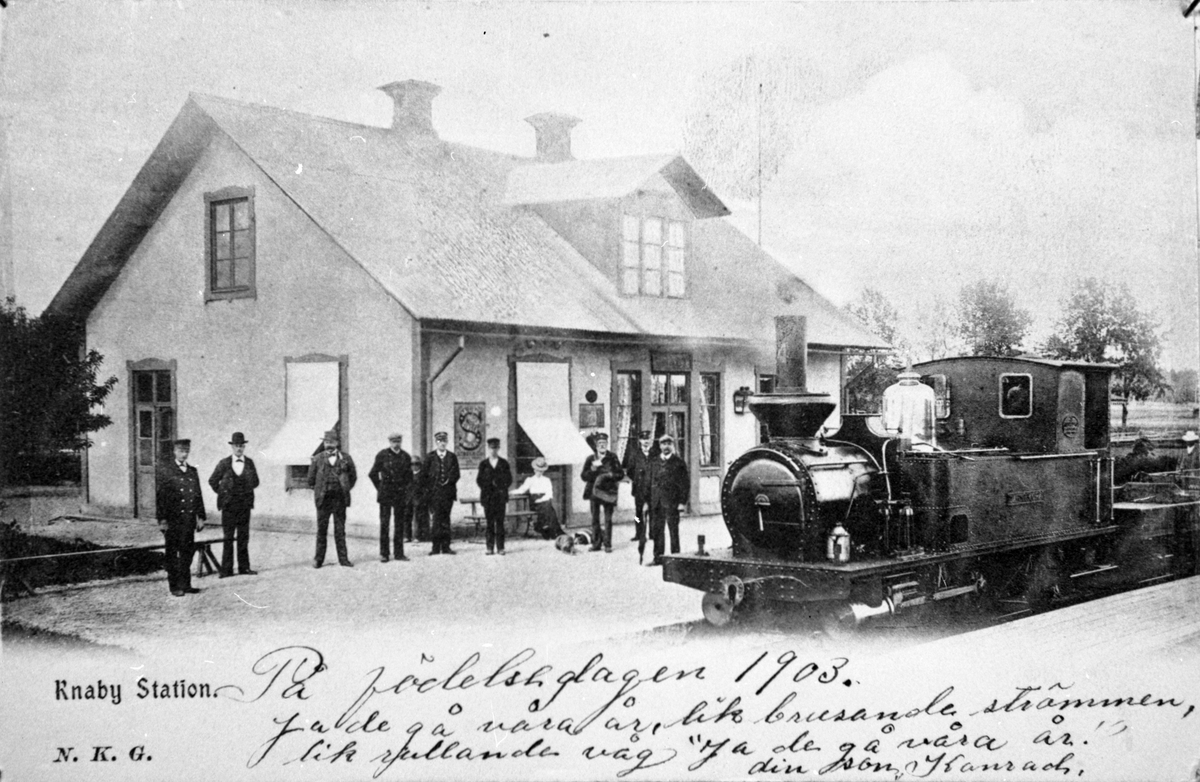 Knaby Station.
På födelsedagen 1903.
Ja de gå våra år, lik brusande strömmen,
lik rullande våg "Ja de gå våra år."
din son, Konrad.
N. K. G.
S